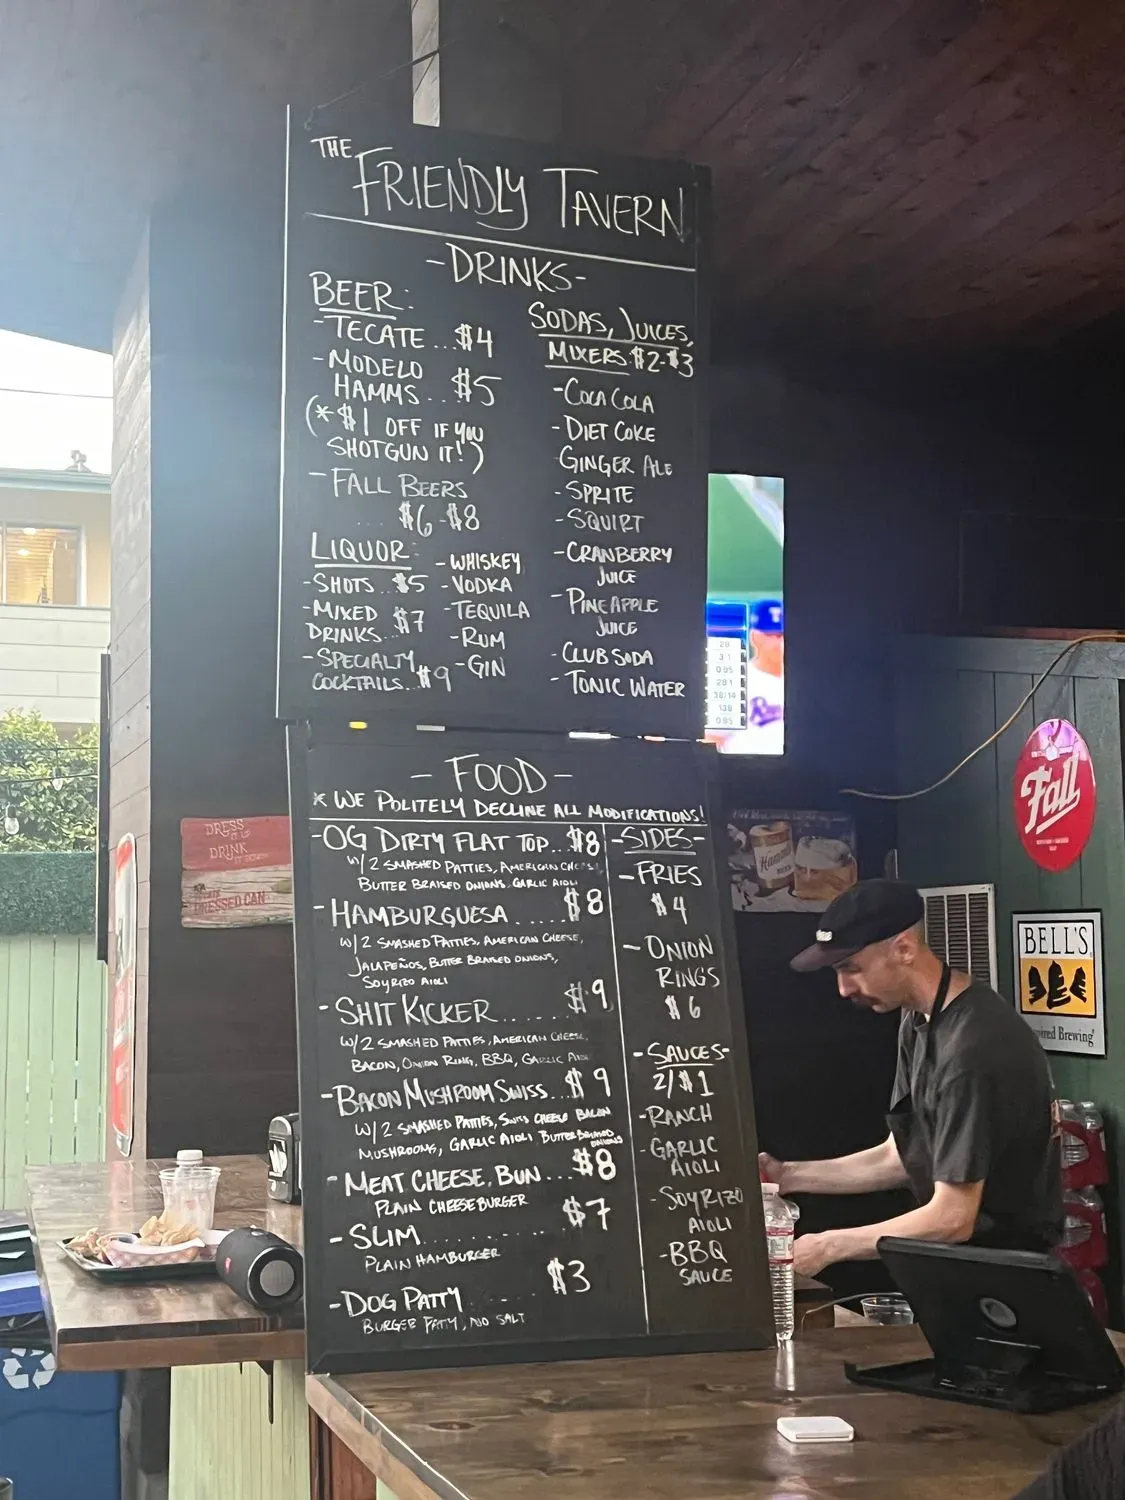 THE
FRIENDLY TAVERN
-DRINKS-
BEER:
-TECATE...$4
-MODELO
HAMMS..$5
(*$1 OFF IF YOU
SHOTGUN IT!)
-FALL BEERS
...$6-$8
LIQUOR:
-SHOTS..$5
-MIXED
DRINKS..$7
-SPECIALTY
COCKTAILS..$9
-WHISKEY
-VODKA
-TEQUILA
-RUM
-GIN
SODAS, JUICES,
MIXERS $2-$3
-COCA COLA
-DIET COKE
-GINGER ALE
-SPRITE
-SQUIRT
-CRANBERRY
JUICE
-PINEAPPLE
JUICE
-CLUB SODA
-TONIC WATER
-FOOD-
* WE POLITELY DECLINE ALL MODIFICATIONS!
-OG DIRTY FLAT TOP..$8
W/2 SMASHED PATTIES, AMERICAN CHEESE,
BUTTER BRAISED ONIONS, GARLIC AIOLI
-HAMBURGUESA.....$8
W/2 SMASHED PATTIES, AMERICAN CHEESE,
JALAPEÑOS, BUTTER BRAISED ONIONS,
SOYRIZO AIOLI
-SHIT KICKER.......$9
W/2 SMASHED PATTIES, AMERICAN CHEESE,
BACON, ONION RING, BBQ, GARLIC AIOLI
-BACON MUSHROOM SWISS...$9
W/2 SMASHED PATTIES, SWISS CHEESE BACON
MUSHROOMS, GARLIC AIOLI BUTTER BRAISED
ONIONS
-MEAT CHEESE, BUN...$8
PLAIN CHEESEBURGER
-SLIM..........$7
PLAIN HAMBURGER
-DOG PATTY.......$3
BURGER PATTY, NO SALT
-SIDES-
-FRIES
$4
-ONION
RINGS
$6
-SAUCES-
2/$1
-RANCH
-GARLIC
AIOLI
-SOYRIZO
AIOLI
-BBQ
SAUCE
DRESS
DRINK
DRESSED CAN
Hamm's
Fall
BELL'S
Brewing
28
3.1
0.95
281
38/14
138
0.95